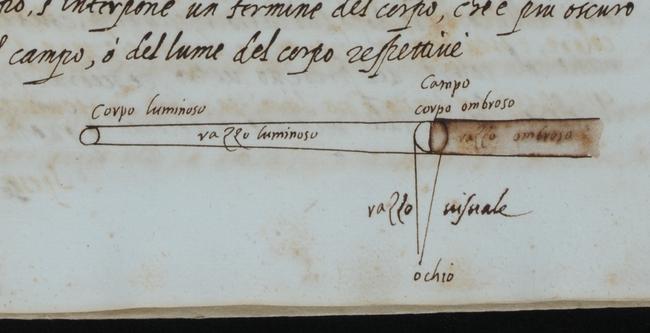 s'interpone un termine del corpo, che e più oscuro
campo, ó del lume del corpo respettiuè
Campo
Corpo luminoso
corpo ombroso
razzo luminoso
razzo ombroso
razzo uisuale
óchio